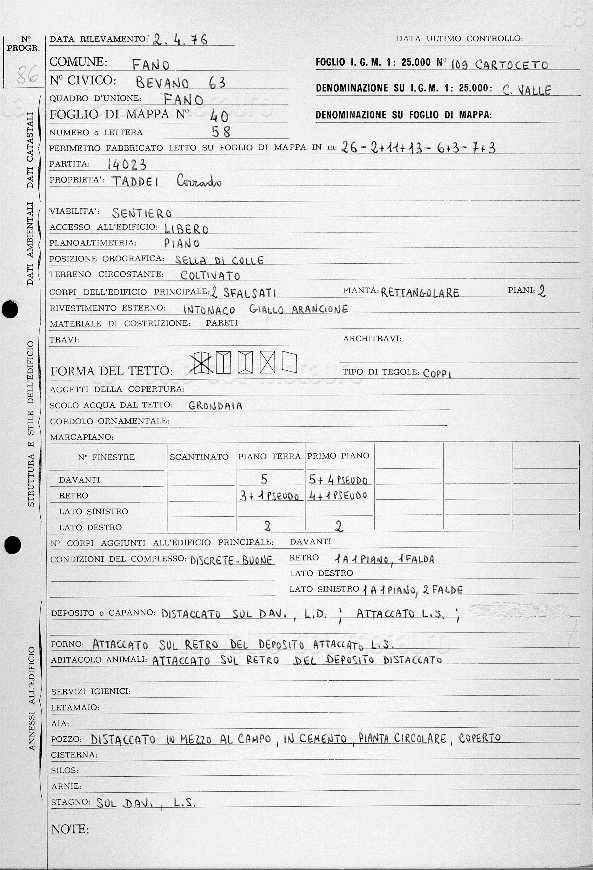 N° PROGR.
86
DATA RILEVAMENTO: 2.4.76
DATA ULTIMO CONTROLLO:
COMUNE: FANO
FOGLIO I.G.M. 1: 25.000 N° 109 CARTOCETO
N° CIVICO: BEVANO 63
DENOMINAZIONE SU I.G.M. 1: 25.000: C. VALLE
QUADRO D'UNIONE: FANO
FOGLIO DI MAPPA N° 40
DENOMINAZIONE SU FOGLIO DI MAPPA:
NUMERO o LETTERA 58
PERIMETRO FABBRICATO LETTO SU FOGLIO DI MAPPA IN m: 26-2+11+13-6+3-7+3
PARTITA: 14023
PROPRIETA': TADDEI Corrado
DATI CATASTALI
VIABILITA': SENTIERO
ACCESSO ALL'EDIFICIO: LIBERO
PLANOALTIMETRIA: PIANO
POSIZIONE OROGRAFICA: SELLA DI COLLE
TERRENO CIRCOSTANTE: COLTIVATO
DATI AMBIENTALI
CORPI DELL'EDIFICIO PRINCIPALE: 2 SFALSATI PIANTA: RETTANGOLARE PIANI: 2
RIVESTIMENTO ESTERNO: INTONACO GIALLO ARANCIONE
MATERIALE DI COSTRUZIONE: PARETI
TRAVI: ARCHITRAVI:
FORMA DEL TETTO: TIPO DI TEGOLE: COPPI
AGGETTI DELLA COPERTURA:
SCOLO ACQUA DAL TETTO: GRONDAIA
CORDOLO ORNAMENTALE:
MARCAPIANO:
N° FINESTRE SCANTINATO PIANO TERRA PRIMO PIANO
DAVANTI 5 5+4 PSEUDO
RETRO 3+1 PSEUDO 4+1 PSEUDO
LATO SINISTRO
LATO DESTRO 2 2
STRUTTURA E STILE DELL'EDIFICIO
N° CORPI AGGIUNTI ALL'EDIFICIO PRINCIPALE: DAVANTI
CONDIZIONI DEL COMPLESSO: DISCRETE-BUONE RETRO 1 A 1 PIANO, 1 FALDA
LATO DESTRO
LATO SINISTRO 1 A 1 PIANO, 2 FALDE
DEPOSITO o CAPANNO: DISTACCATO SUL DAV., L.D.; ATTACCATO L.S.;
FORNO: ATTACCATO SUL RETRO DEL DEPOSITO ATTACCATO L.S.
ABITACOLO ANIMALI: ATTACCATO SUL RETRO DEL DEPOSITO DISTACCATO
SERVIZI IGIENICI:
LETAMAIO:
AIA:
POZZO: DISTACCATO IN MEZZO AL CAMPO, IN CEMENTO, PIANTA CIRCOLARE, COPERTO
CISTERNA:
SILOS:
ARNIE:
STAGNO: SUL DAV., L.S.
ANNESSI ALL'EDIFICIO
NOTE: